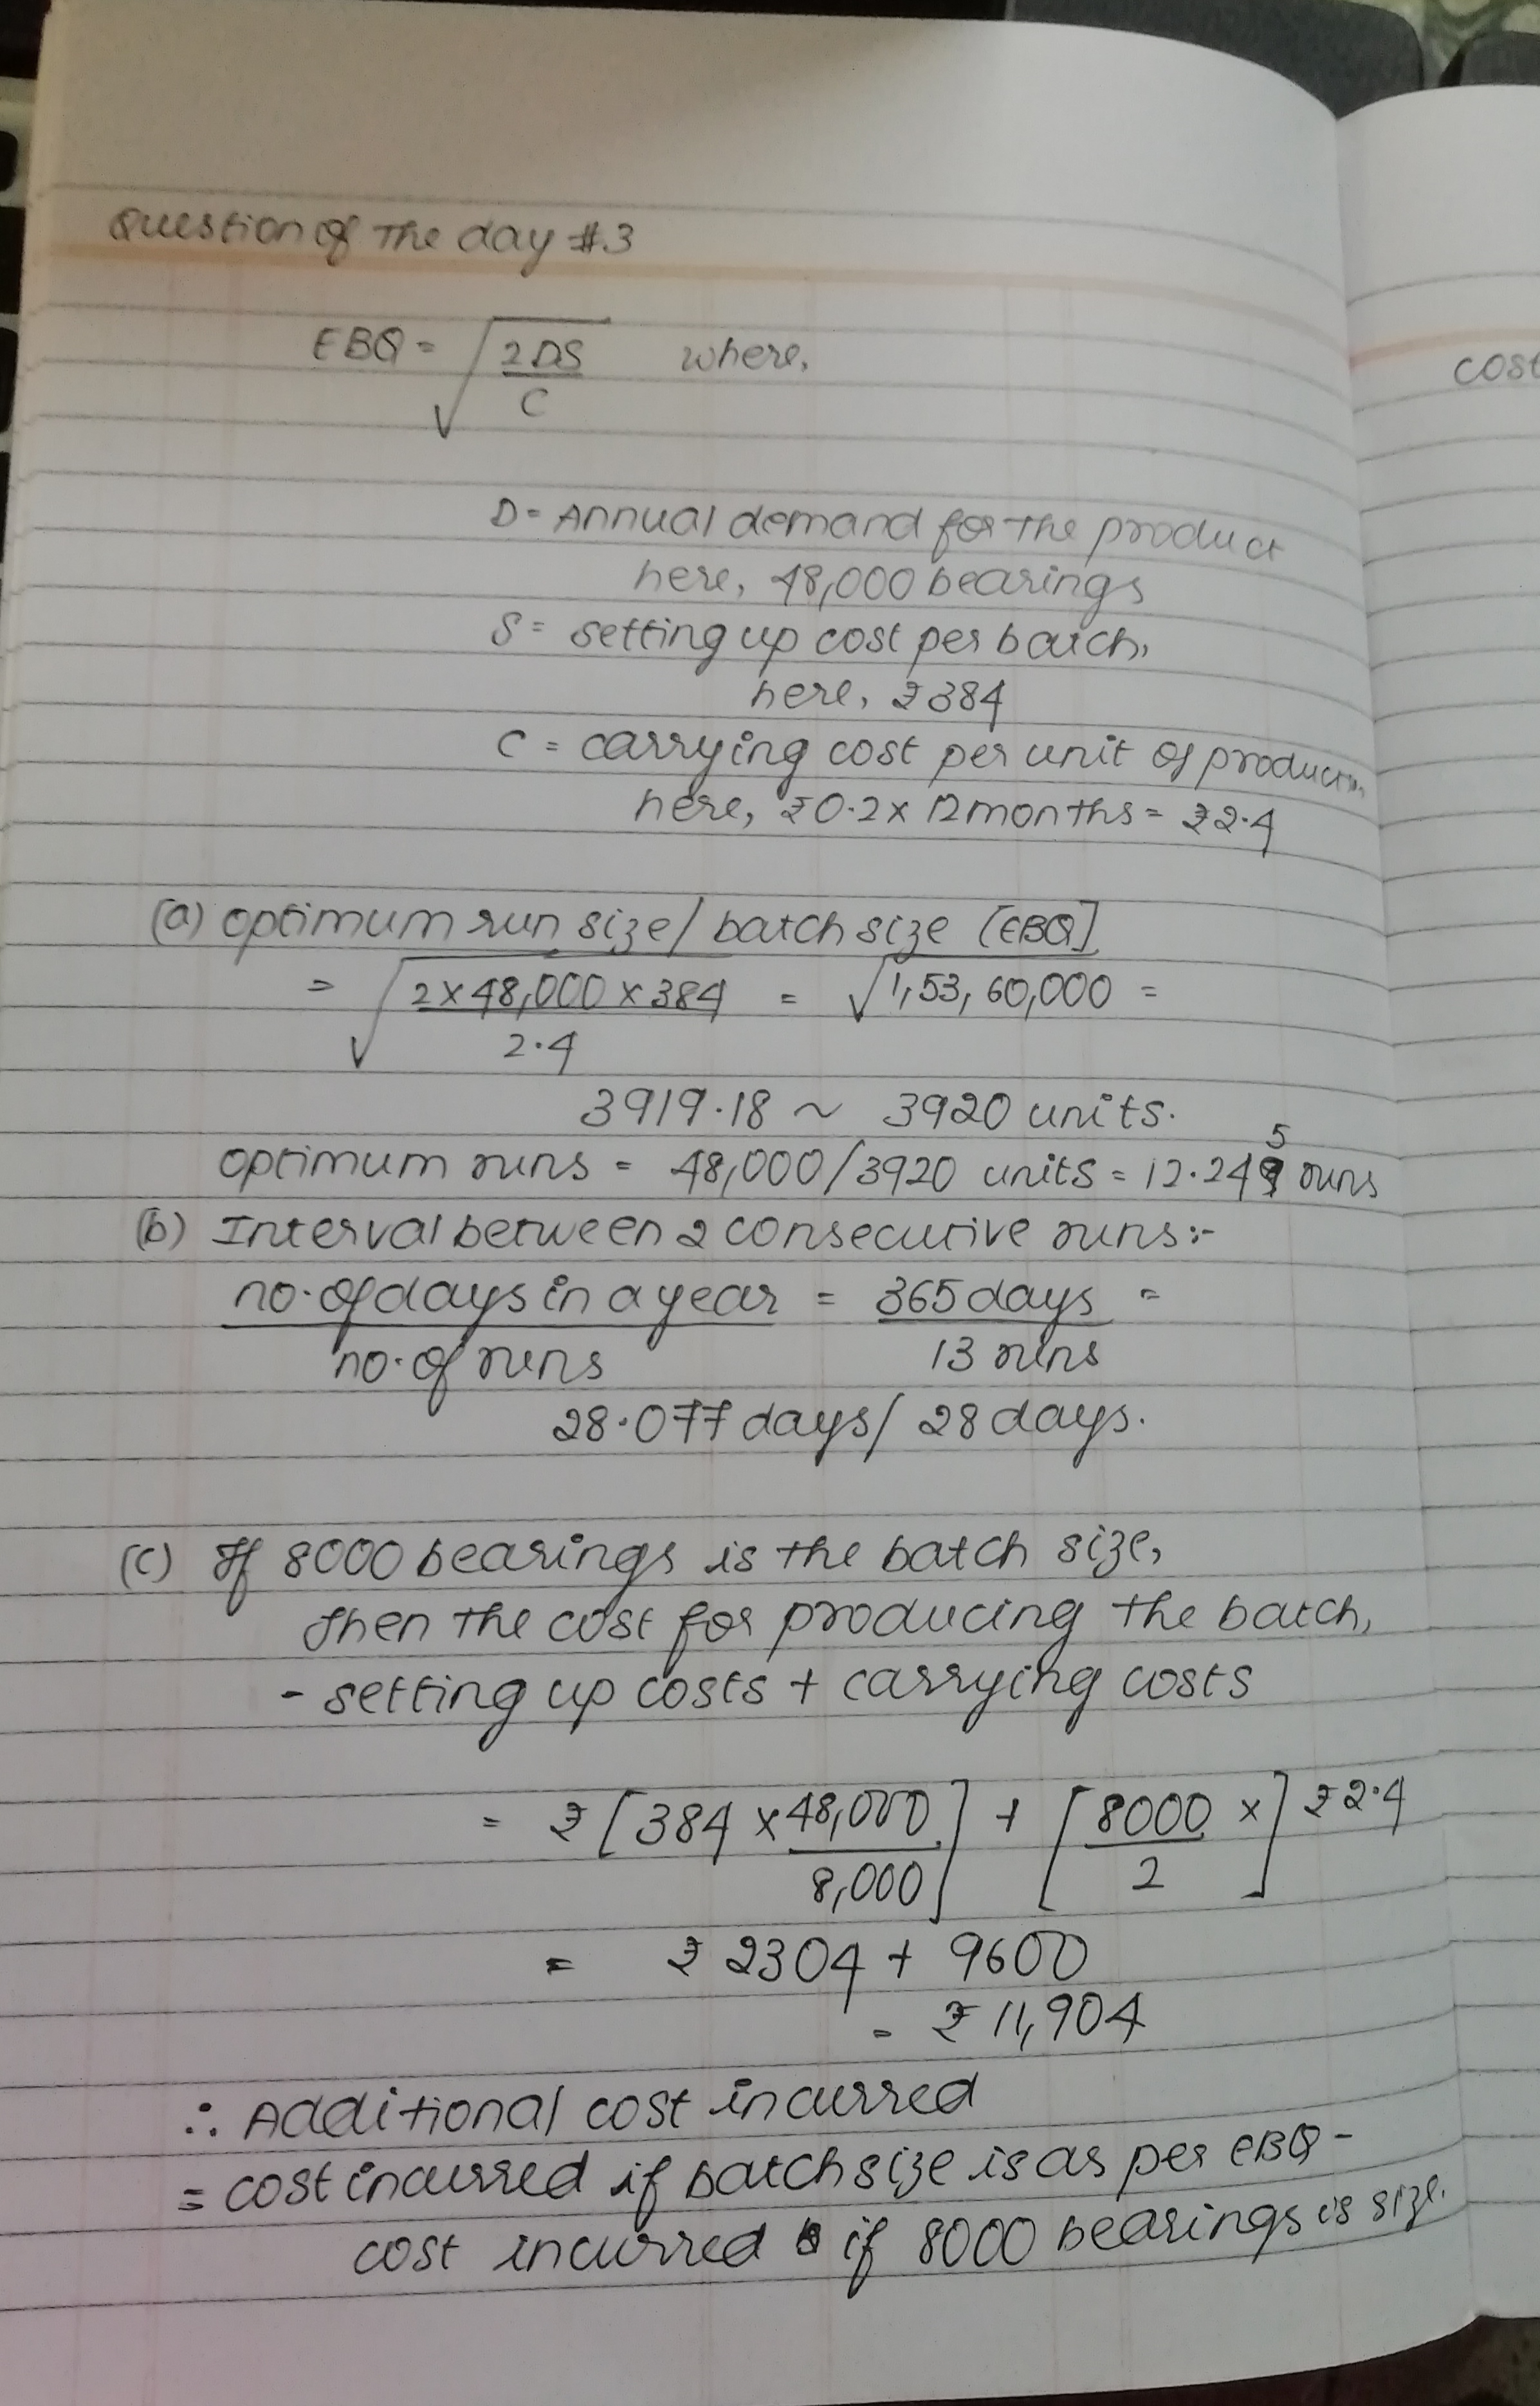 Question of The day #3
EBQ = √(2DS/C) where,
D = Annual demand for the product
here, 48,000 bearings
S = setting up cost per batch,
here, ₹384
C = carrying cost per unit of production
here, ₹0.2 x 12 months = ₹2.4
(a) optimum run size / batch size [EBQ]
= √(2 x 48,000 x 384 / 2.4) = √1,53,60,000 =
3919.18 ~ 3920 units.
optimum runs = 48,000/3920 units = 12.245 runs
(b) Interval between 2 consecutive runs:-
no. of days in a year / no. of runs = 365 days / 13 runs =
28.077 days / 28 days.
(c) If 8000 bearings is the batch size,
then the cost for producing the batch,
- setting up costs + carrying costs
= ₹ [384 x 48,000/8,000] + [8000/2 x] ₹2.4
= ₹ 2304 + 9600
= ₹ 11,904
∴ Additional cost incurred
= cost incurred if batch size is as per EBQ -
cost incurred if 8000 bearings is size.
cost